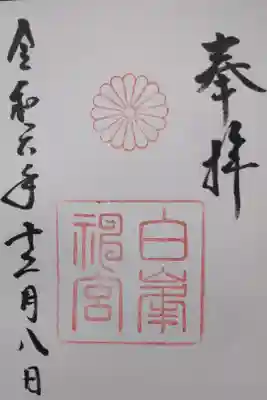 奉拝
白峯神宮
令和六年十二月八日